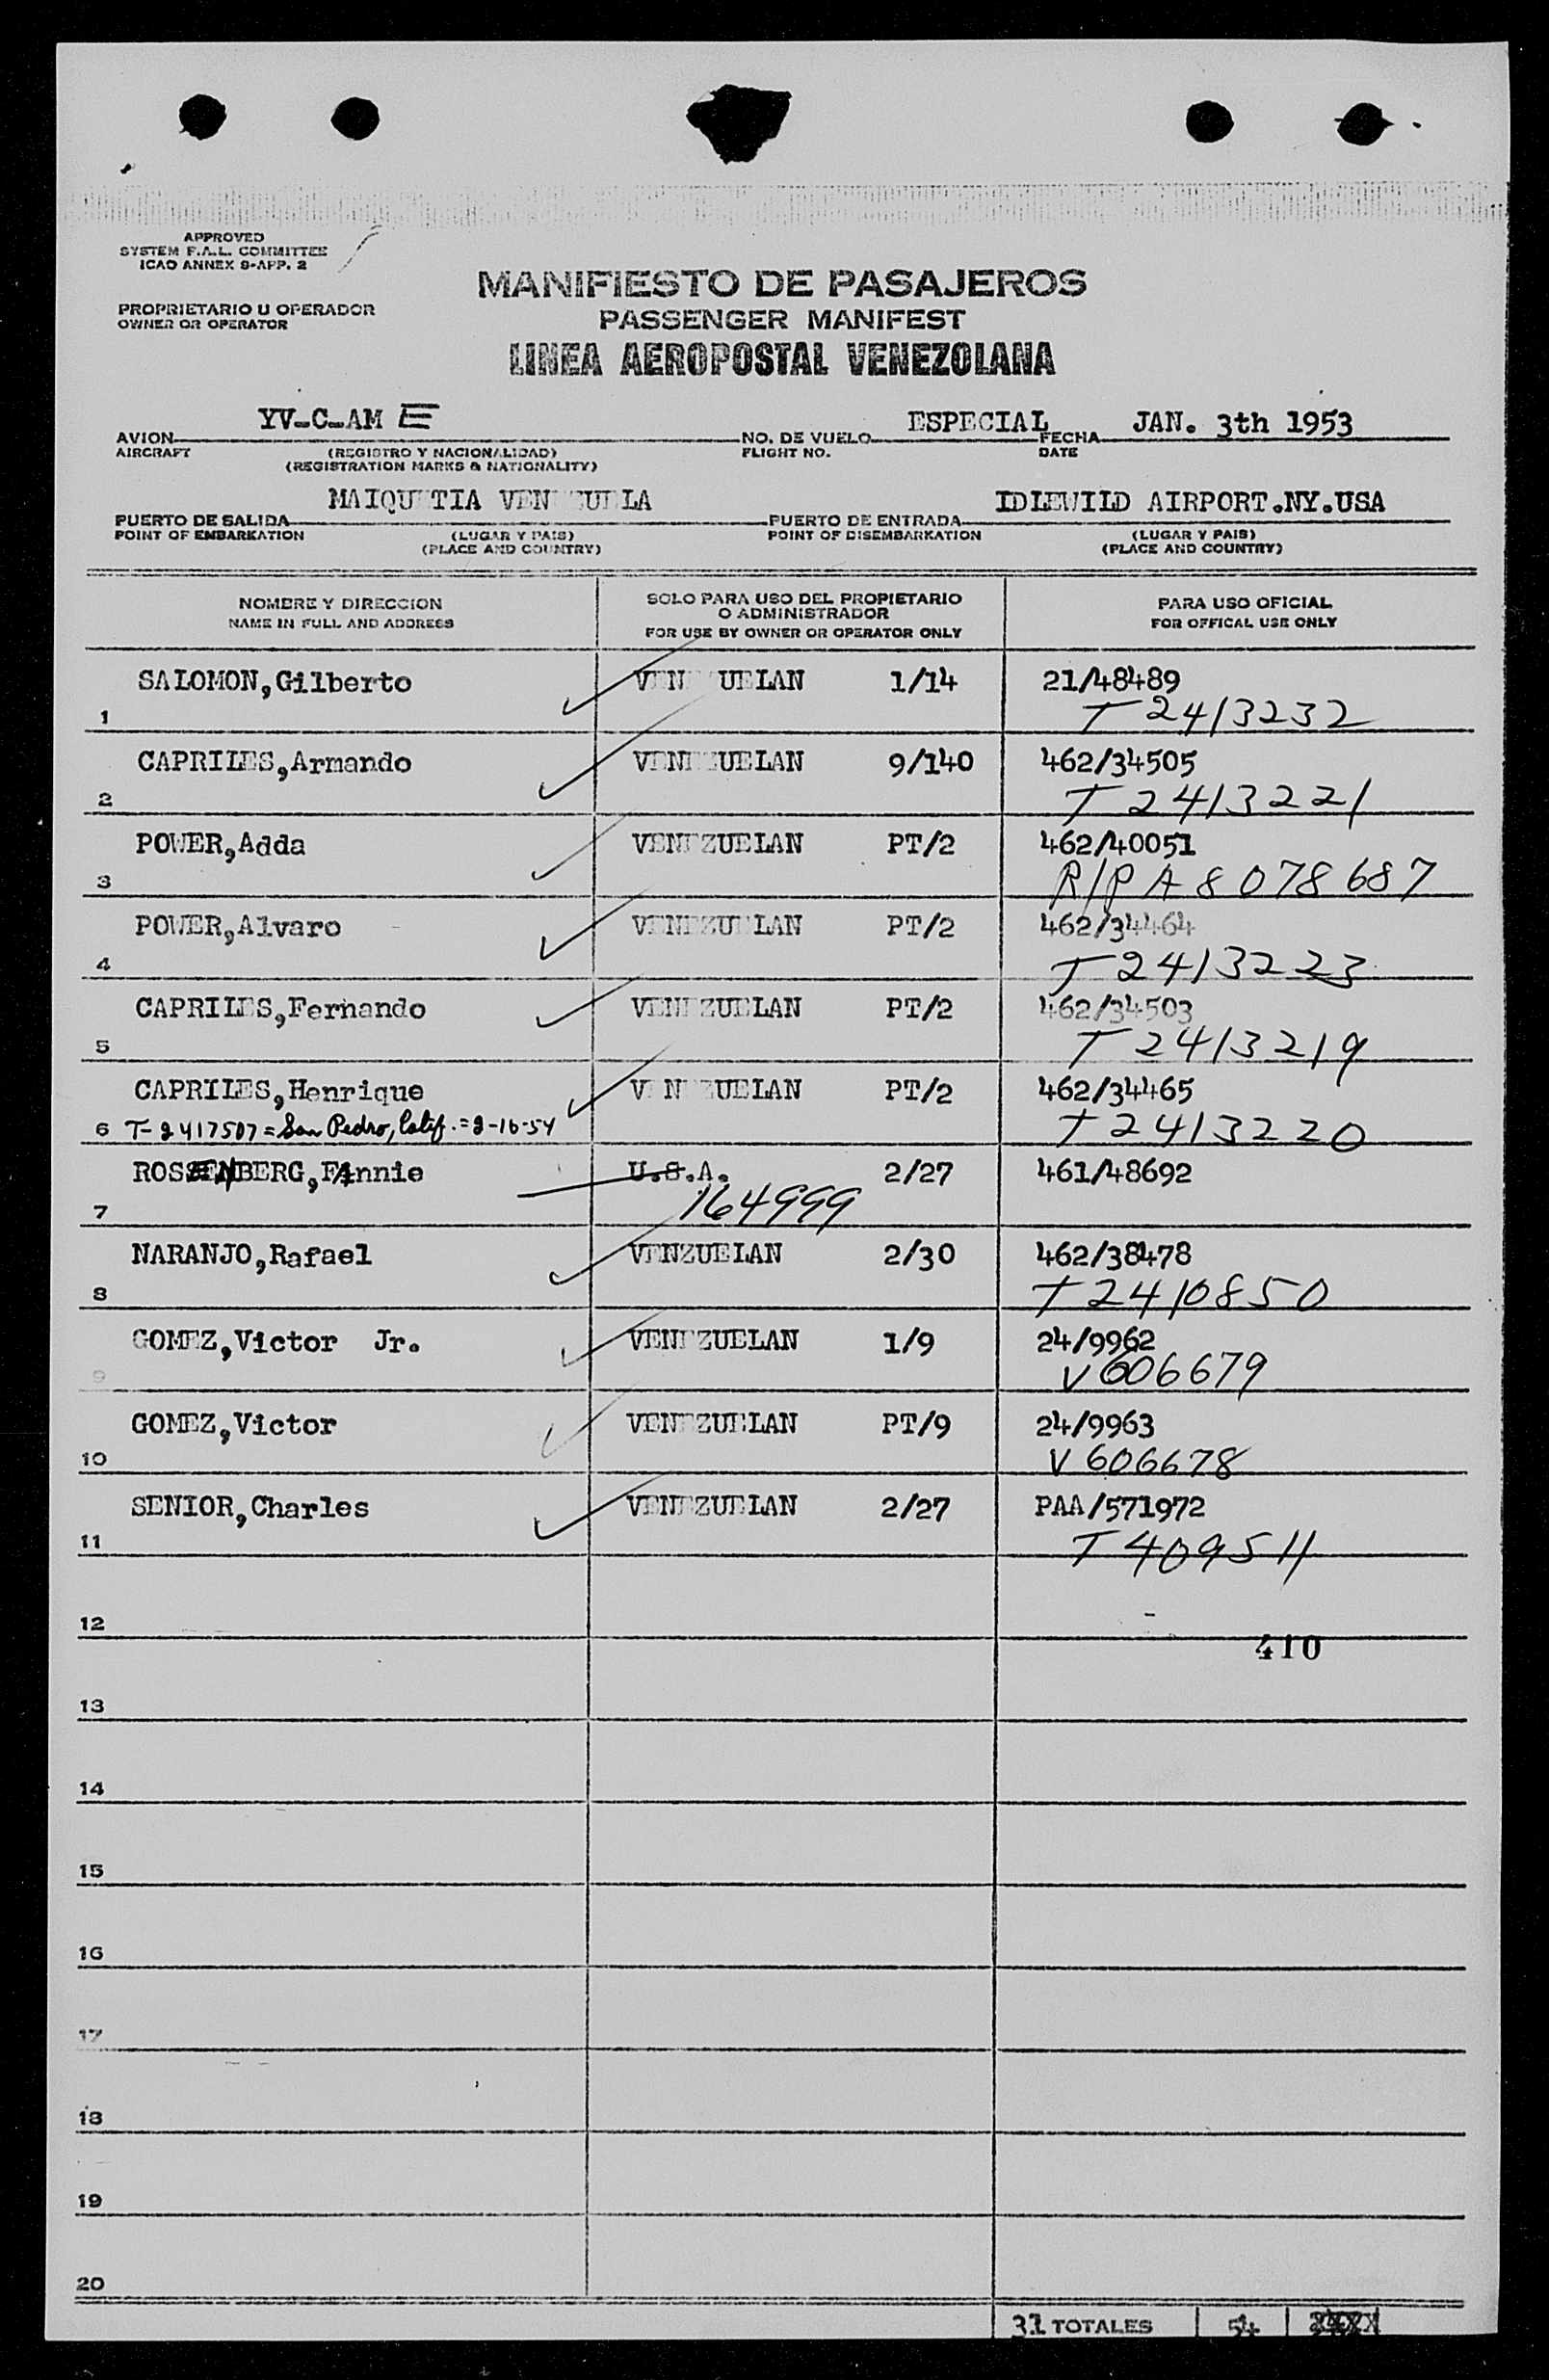 APPROVED
SYSTEM F.A.L. COMMITTEE
ICAO ANNEX 9-APP. 2
MANIFIESTO DE PASAJEROS
PROPRIETARIO U OPERADOR
OWNER OR OPERATOR
PASSENGER MANIFEST
LINEA AEROPOSTAL VENEZOLANA
YV-C-AM E ESPECIAL JAN. 3th 1953
AVION NO. DE VUELO FECHA
AIRCRAFT (REGISTRO Y NACIONALIDAD) FLIGHT NO. DATE
(REGISTRATION MARKS & NATIONALITY)
MAIQUETIA VENEZUELA IDLEWILD AIRPORT.NY.USA
PUERTO DE SALIDA PUERTO DE ENTRADA
POINT OF EMBARKATION (LUGAR Y PAIS) POINT OF DISEMBARKATION (LUGAR Y PAIS)
(PLACE AND COUNTRY) (PLACE AND COUNTRY)
NOMBRE Y DIRECCION SOLO PARA USO DEL PROPIETARIO PARA USO OFICIAL
NAME IN FULL AND ADDRESS O ADMINISTRADOR FOR OFFICAL USE ONLY
FOR USE BY OWNER OR OPERATOR ONLY
SALOMON,Gilberto VENEZUELAN 1/14 21/48489
1 T 2413232
CAPRILES,Armando VENEZUELAN 9/140 462/34505
2 T 2413221
POWER,Adda VENEZUELAN PT/2 462/40051
3 R/P A 8078687
POWER,Alvaro VENEZUELAN PT/2 462/34464
4 T 2413223
CAPRILES,Fernando VENEZUELAN PT/2 462/34503
5 T 2413219
CAPRILES,Henrique VENEZUELAN PT/2 462/34465
6 T-2417507 = San Pedro, Calif. = 2-16-54 T 2413220
ROSENBERG,Fannie U.S.A. 2/27 461/48692
7 164999
NARANJO,Rafael VENZUELAN 2/30 462/38478
8 T 2410850
GOMEZ,Victor Jr. VENEZUELAN 1/9 24/9962
9 V 606679
GOMEZ,Victor VENEZUELAN PT/9 24/9963
10 V 606678
SENIOR,Charles VENEZUELAN 2/27 PAA/571972
11 T 409511
12
410
13
14
15
16
17
18
19
20
TOTALES 54